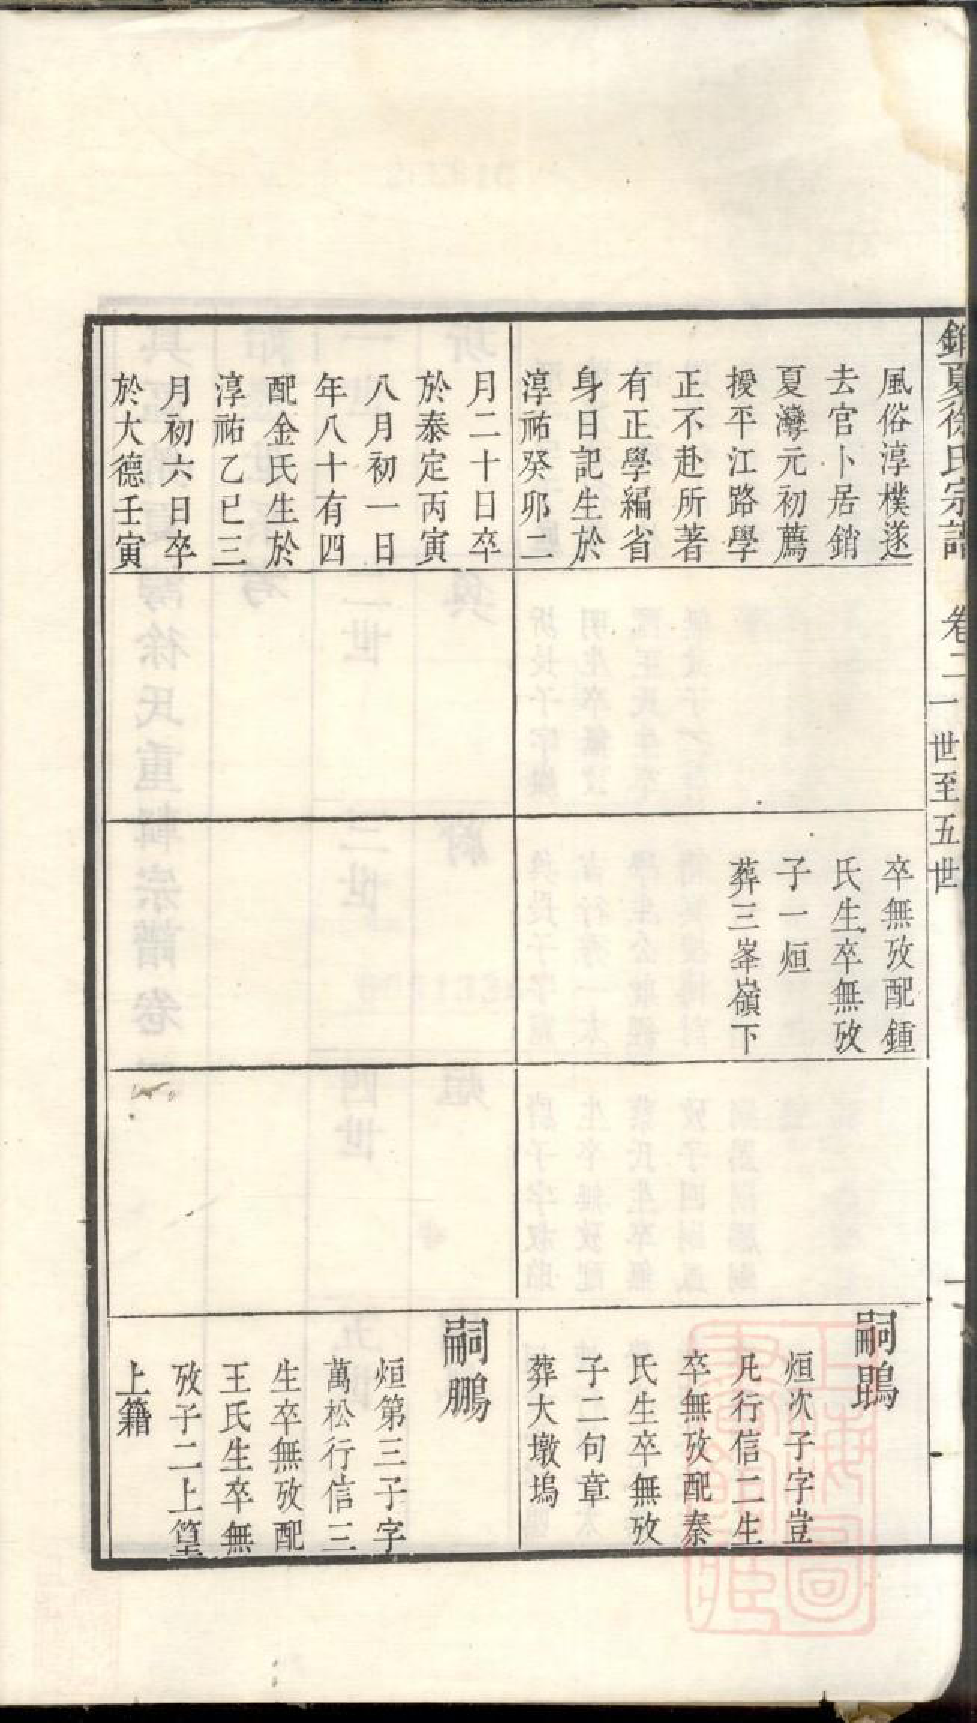 銷夏徐氏宗譜 卷二 一世至五世
風俗淳樸遂
去官卜居銷
夏灣元初薦
授平江路學
正不赴所著
有正學編省
身日記生於
淳祐癸卯二
月二十日卒
於泰定丙寅
八月初一日
年八十有四
配金氏生於
淳祐乙巳三
月初六日卒
於大德壬寅
卒無攷配鍾
氏生卒無攷
子一烜
葬三峯嶺下
嗣鵾
烜次子字豈
凡行信二生
卒無攷配秦
氏生卒無攷
子二句章
葬大墩塢
嗣鵬
烜第三子字
萬松行信三
生卒無攷配
王氏生卒無
攷子二上篁
上籍